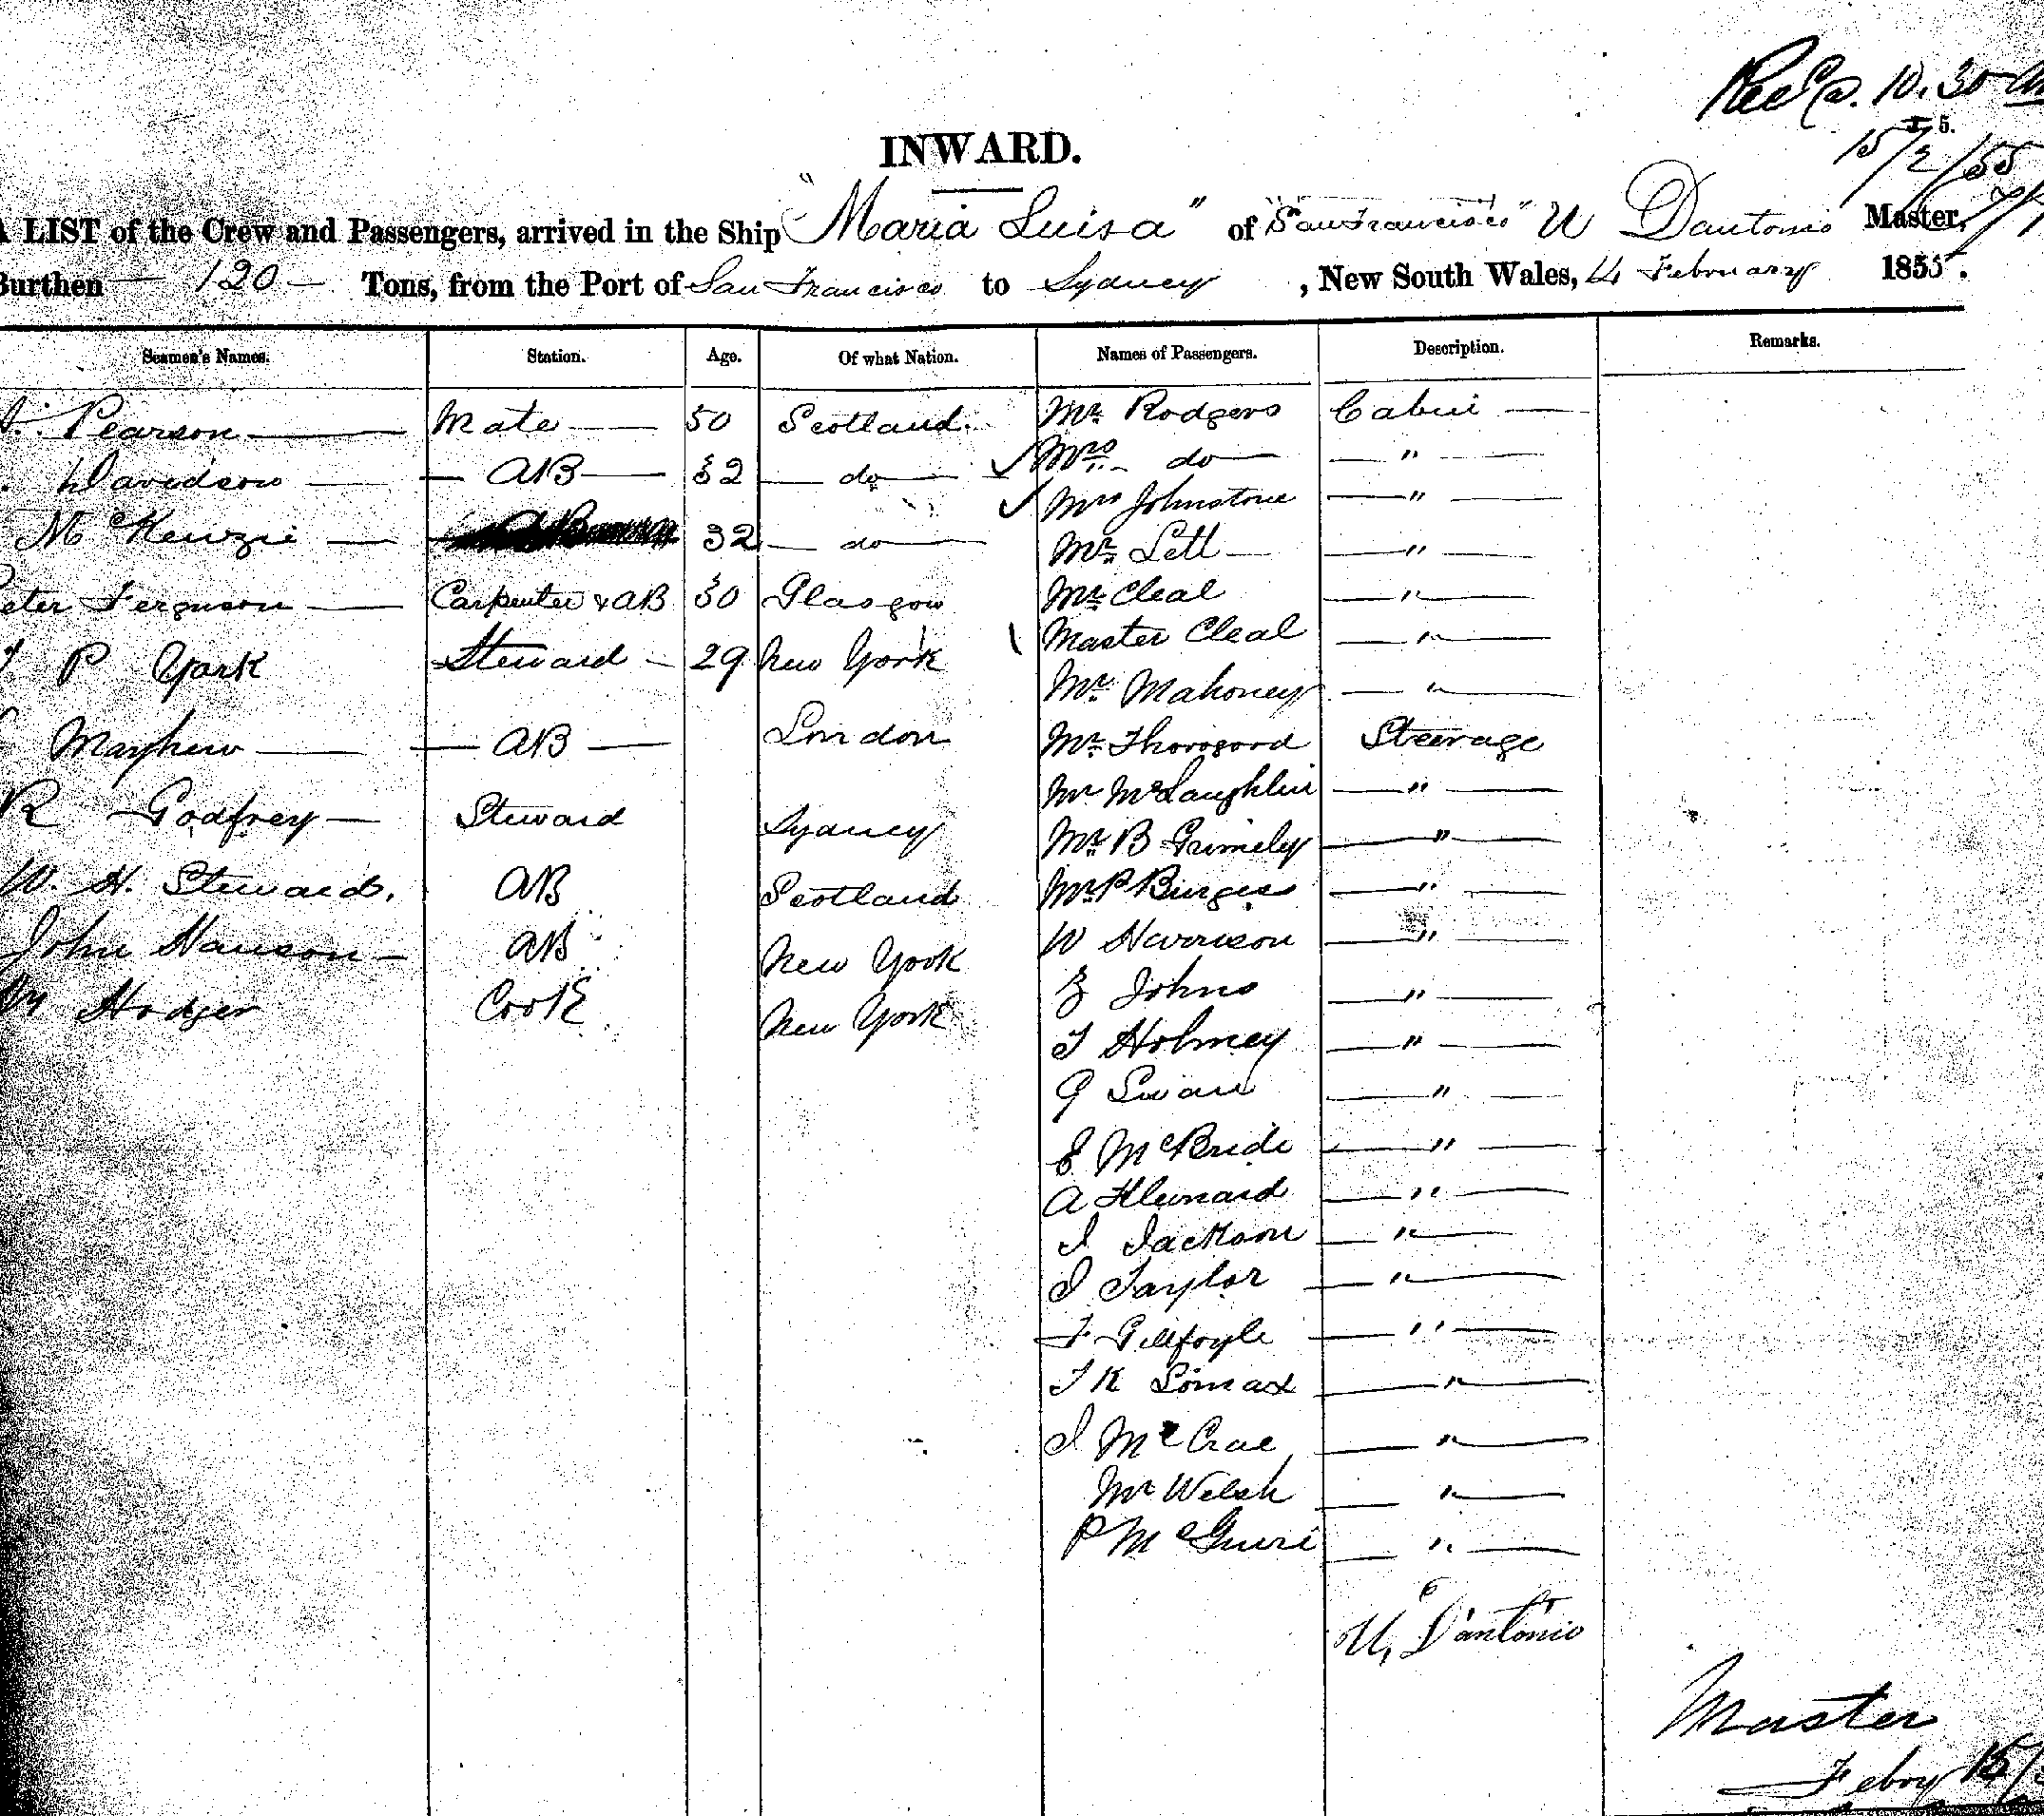 Recd 10.30 am
I 5.
15/2/55
INWARD.
A LIST of the Crew and Passengers, arrived in the Ship "Maria Luisa" of "San Francisco" U Dantonio Master,
Burthen 120 Tons, from the Port of San Francisco to Sydney, New South Wales, 14 February 1855.
Seamen's Names. Station. Age. Of what Nation. Names of Passengers. Description. Remarks.
Pearson Mate 50 Scotland Mr Rodgers Cabin
Davidson AB 32 do Mrs do "
McKenzie 32 do Mrs Johnstone "
Mr Lett "
Peter Ferguson Carpenter & AB 30 Glasgow Mr Cleal "
P York Steward 29 New York Master Cleal "
Mr Mahoney "
Mayhew AB London Mr Thorogood Steerage
Mr McLaughlin "
R Godfrey Steward Sydney Mr B Grimely "
W. H. Steward. AB Scotland Mr P Burgess "
John Hanson AB New York W Harrison "
Wm Hodger Cook New York Z Johns "
T Holmey "
G Swan "
E McBride "
A "
J Jackson "
J Taylor "
F Gillfoyle "
T K Lomax "
J McCrae "
Mr Welsh "
P McGuire "
U, D'antonio
Master
Feby 15/